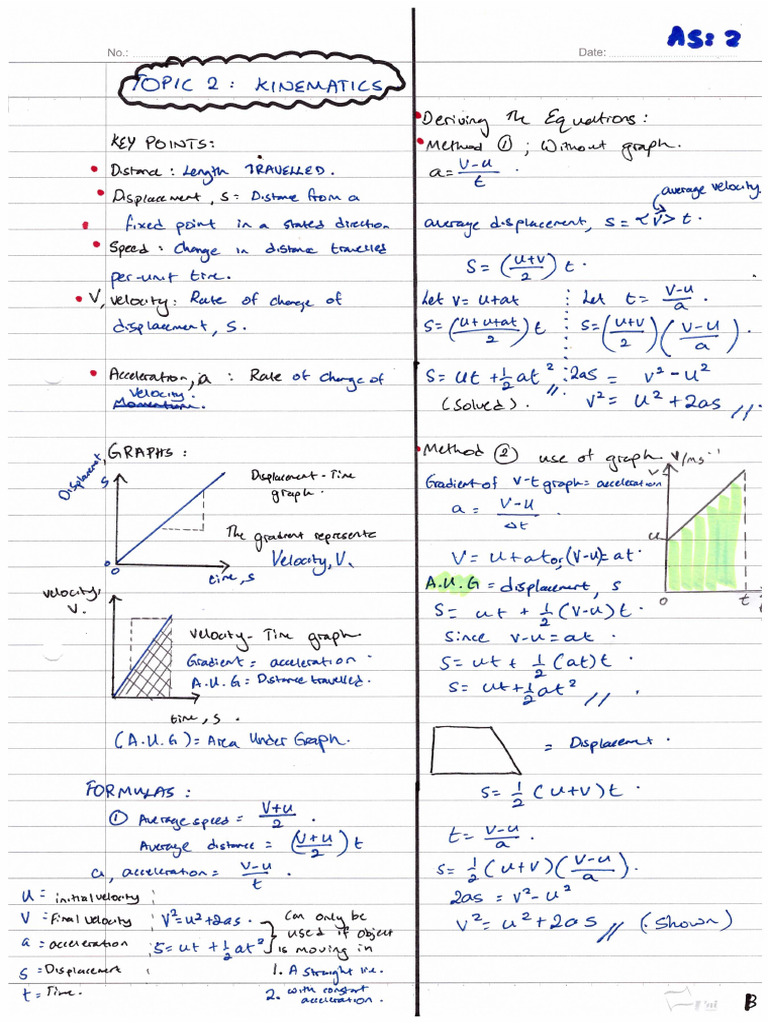 No.:
Date:
AS: 2
TOPIC 2 : KINEMATICS
KEY POINTS:
Distance : Length TRAVELLED.
Displacement, s = Distane from a
fixed point in a stated direction
Speed : Change in distance travelled
per-unit time.
V, velocity : Rate of change of
displacement, s.
Acceleration, a : Rate of change of
velocity.
Momentum.
GRAPHS :
Displacement, s
Displacement - Time
graph.
The gradient represents
Velocity, V.
0
0
time, s
velocity,
V.
Velocity - Time graph
Gradient = acceleration
A.U.G = Distance travelled.
time, s .
(A.U.G) = Area Under Graph.
FORMULAS :
① Average speed = V+u/2 .
Average distance = (V+u/2) t
a, acceleration = V-u/t .
u = initial velocity
V = Final velocity
a = acceleration
s = Displacement
t = Time.
V² = u² + 2as .
S = ut + ½at²
Can only be
used if object
is moving in
1. A straight line.
2. with constant
acceleration.
Deriving The Equations :
Method ① ; Without graph.
a = V-u/t .
average velocity.
average displacement, s = <V> t .
S = (u+v/2) t .
Let v = u+at
S = (u+u+at/2) t
S = ut + ½at² //
(Solved) .
Let t = V-u/a .
S = (u+v/2) (V-u/a)
2as = v² - u²
v² = u² + 2as //
Method ② use of graph.
V/ms⁻¹
V
u
0
t
Gradient of v-t graph = acceleration
a = V-u/Δt
V = u+at or (V-u) = at .
A.U.G = displacement, s
S = ut + ½ (v-u) t .
Since v-u = at .
S = ut + ½ (at) t .
S = ut + ½at² //
= Displacement .
S = ½ (u+v) t .
t = V-u/a .
S = ½ (u+v) (V-u/a) .
2as = v² - u²
V² = u² + 2as // (Shown)
B